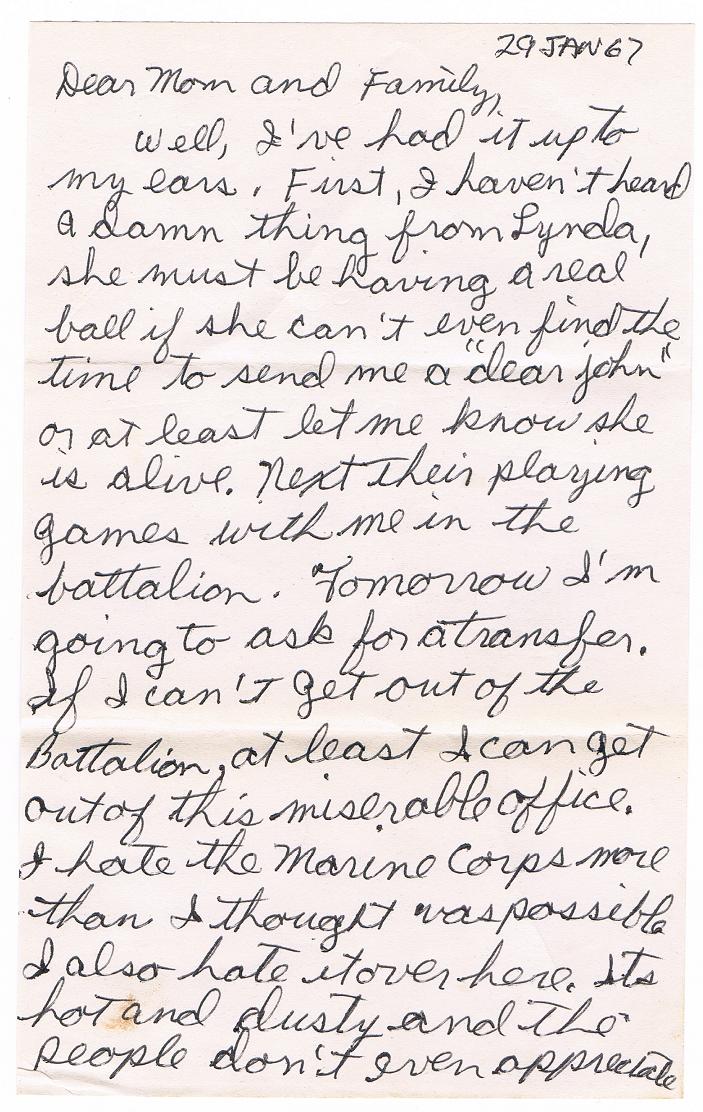 29 JAN 67
Dear Mom and Family,
Well, I've had it up to
my ears. First, I haven't heard
a damn thing from Lynda,
she must be having a real
ball if she can't even find the
time to send me a "dear john"
or at least let me know she
is alive. Next their playing
games with me in the
battalion. Tomorrow I'm
going to ask for a transfer.
If I can't get out of the
Battalion, at least I can get
out of this miserable office.
I hate the Marine Corps more
than I thought was possible
I also hate it over here. Its
hot and dusty and the
people don't even appreciate